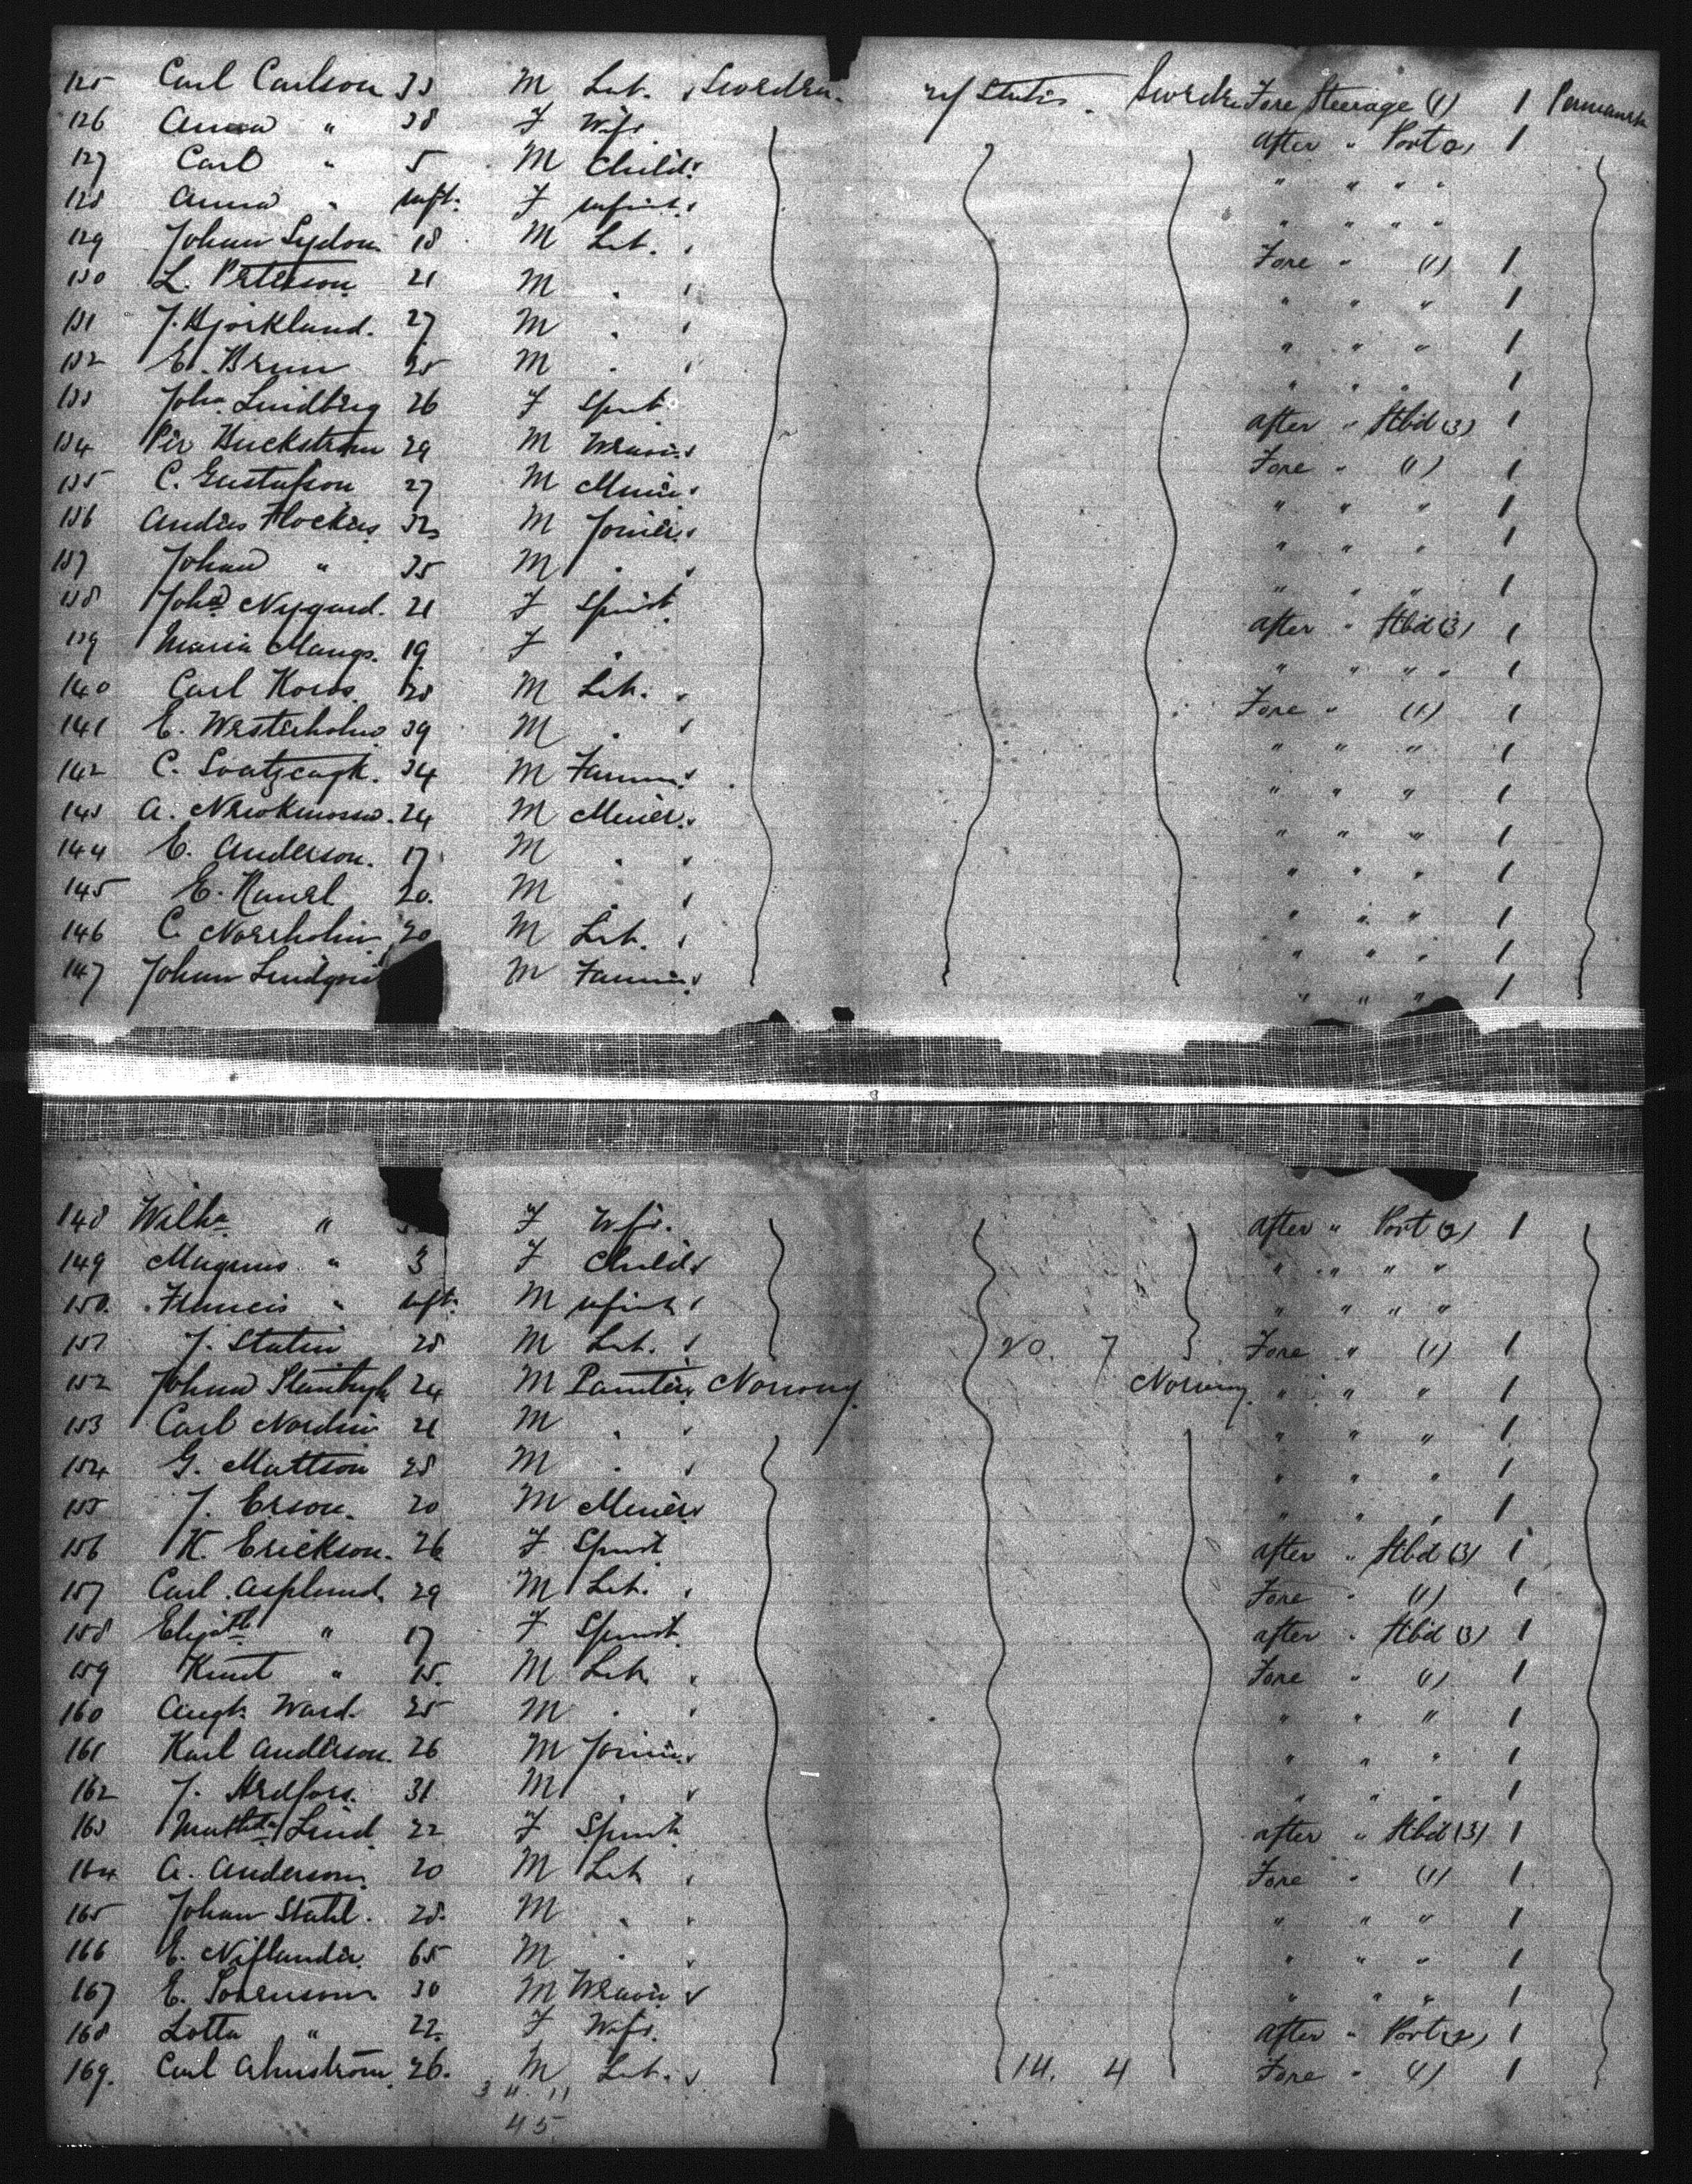 125 Carl Carlson 33 M Lab. Sweden. U States. Sweden Fore Steerage (1) 1 Permanent
126 Anna " 38 F Wife after " Port (2) 1
127 Carl " 5 M Child " " " "
128 Anna " Inft. F Infant " " " "
129 Johan Sydow 18 M Lab. Fore " (1) 1
130 L. Peterson 21 M " " " " 1
131 J. Bjorklund. 27 M " " " " 1
132 E. Brun 25 M " " " " 1
133 Joha. Lindberg 26 F Spinst after " Stbd (3) 1
134 Per Buckstrom 29 M Weaver Fore " (1) 1
135 C. Gustafson 27 M Miner " " " 1
136 32 M Joiner " " " 1
137 Johan " 35 M " " " " 1
138 Joha Nygard. 21 F Spinst after " Stbd (3) 1
139 Maria Mangs. 19 F " " " " " 1
140 Carl 28 M Lab. Fore " (1) 1
141 E. Westerholm 39 M " " " " 1
142 C. 34 M Farmer " " " 1
143 A. 24 M Miner " " " 1
144 E. Anderson. 17 M " " " " 1
145 E. 20. M " " " " 1
146 C. Norrholm 20 M Lab. " " " 1
147 Johan Lindqvi M Farmer " " " 1
148 Wilha " F Wife. after " Port (2) 1
149 Magnus " 3 F Child " " " "
150. Francis " Inft. M Infant " " " "
151 J. Statin 28 M Lab. 20. 7 Fore " (1) 1
152 Johan 24 M Painter Norway Norway " " " 1
153 Carl Nordin 21 M " " " " 1
154 G. Mattson 28 M " " " " 1
155 J. Erson. 20 M Miner " " " 1
156 K. Erickson. 26 F Spinst after " Stbd (3) 1
157 Carl Asplund 29 M Lab. Fore " (1) 1
158 Elizath " 17 F Spinst after " Stbd (3) 1
159 Knut " 15. M Lab Fore " (1) 1
160 Augt. Ward. 25 M " " " " 1
161 Karl Anderson. 26 M Joiner " " " 1
162 J. 31 M " " " " 1
163 Mathda Lind 22 F Spinst after " Stbd (3) 1
164 A. Anderson 20 M Lab Fore " (1) 1
165 Johan Stahl. 28. M " " " " 1
166 E. 65 M " " " " 1
167 E. Sorenson 30 M Weaver " " " 1
168 Lotta " 22. F Wife. after " Port (2) 1
169. Carl Almstrom 26. M Lab. 14. 4 Fore " (1) 1
3 4. 11
45